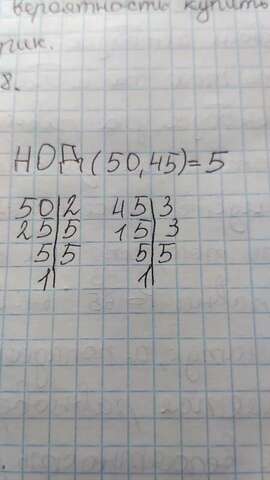 вероятность купить
пик.
8.
НОД (50,45)=5
50|2 45|3
25|5 15|3
5|5 5|5
1| 1|